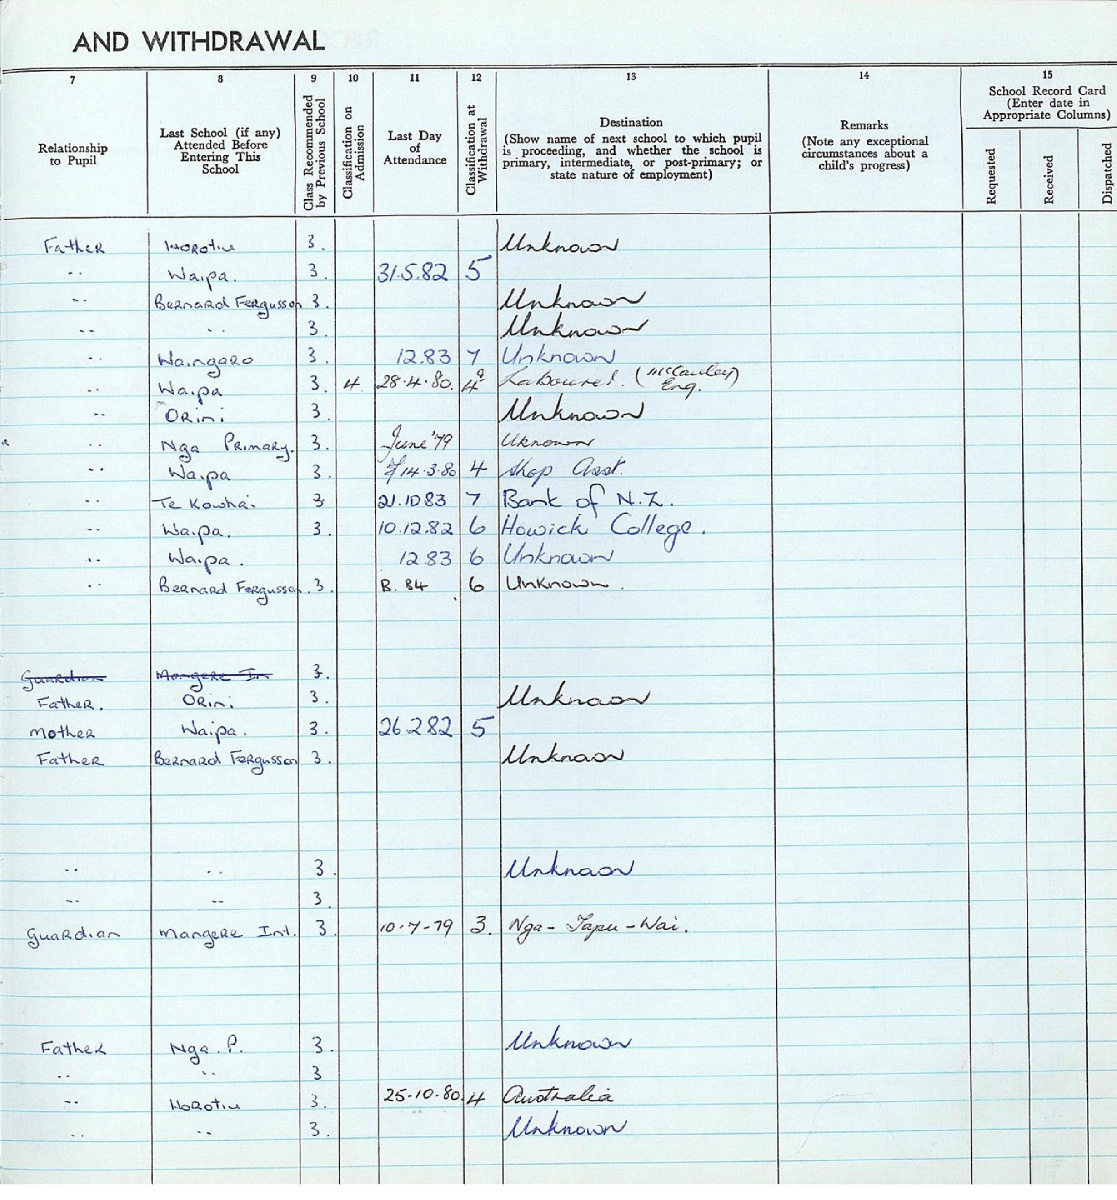 AND WITHDRAWAL
7 8 9 10 11 12 13 14 15
Relationship to Pupil
Last School (if any) Attended Before Entering This School
Class Recommended by Previous School
Classification on Admission
Last Day of Attendance
Classification at Withdrawal
Destination
(Show name of next school to which pupil is proceeding, and whether the school is primary, intermediate, or post-primary; or state nature of employment)
Remarks
(Note any exceptional circumstances about a child's progress)
School Record Card
(Enter date in Appropriate Columns)
Requested
Received
Dispatched
Father Horotiu 3. Unknown
" Waipa. 3. 31.5.82 5
" Bernard Fergusson 3. Unknown
" " 3. Unknown
" Waingaro 3. 12.83 7 Unknown
" Waipa 3. 4. 28.4.80. 4 Labourer. (McCauley) Eng.
" Orini 3. Unknown
" Nga Primary. 3. June '79 Uknown
" Waipa 3. 14.3.80 4 Shop Asst.
" Te Kowhai 3 21.10 83 7 Bank of N.Z.
" Waipa. 3. 10.12.82 6 Howick College.
" Waipa. 12.83 6 Unknown
" Bernard Fergusson. 3. 84 6 Unknown.
Guardian Mangere In 3.
Father. Orini 3. Unknown
Mother Waipa. 3. 26.2.82 5
Father Bernard Fergusson 3. Unknown
" " 3. Unknown
" " 3.
Guardian Mangere Int. 3. 10-7-79 3. Nga-Tapu-Wai.
Father Nga. P. 3. Unknown
" " 3
" Horotiu 3. 25-10-80. 4 Australia
" " 3. Unknown